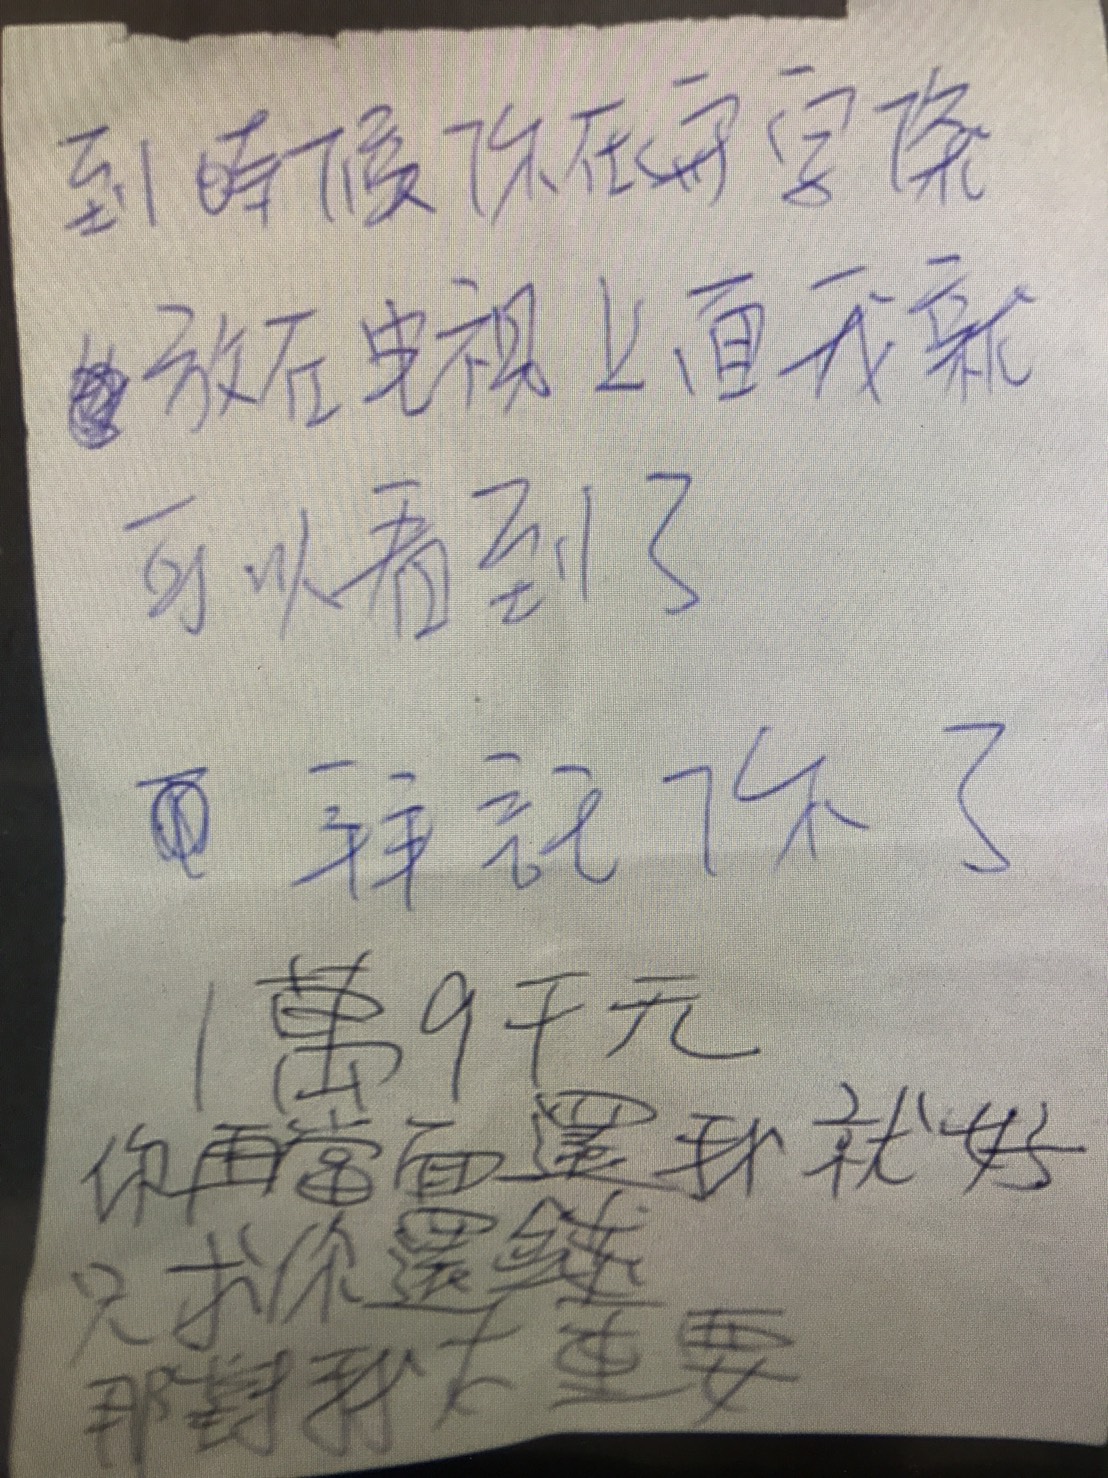 到時候你在再写條
放在电視上面我就
可以看到了
拜託你了
1萬9千元
你再當面還我就好
只求你還錢
那對我太重要